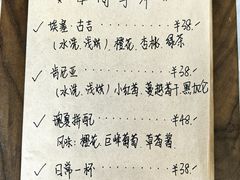 ✓ 埃塞·古吉 ¥38.-
(水洗、浅烘)、橙花、杏桃、绿茶
✓ 肯尼亚 ¥38.-
(水洗、浅烘) 小红莓、蔓越莓干、黑加仑
✓ 瑰夏拼配 ¥48.-
风味: 樱花、巨峰葡萄、草莓酱
✓ 日常一杯 ¥38.-